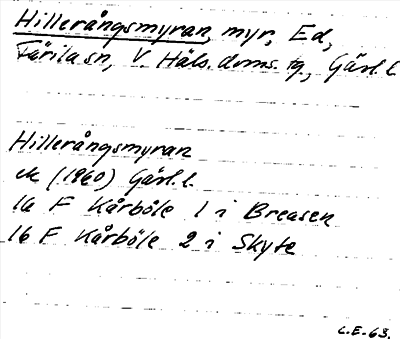 Hillerångsmyran, myr, Ed,
Färila sn, V. Häls. doms. tg., Gävl. l.
Hillerångsmyran
ek (1960) Gävl. l.
1a F Kårböle 1 i Breasen
16 F Kårböle 2 i Skyte
C.E.-63.